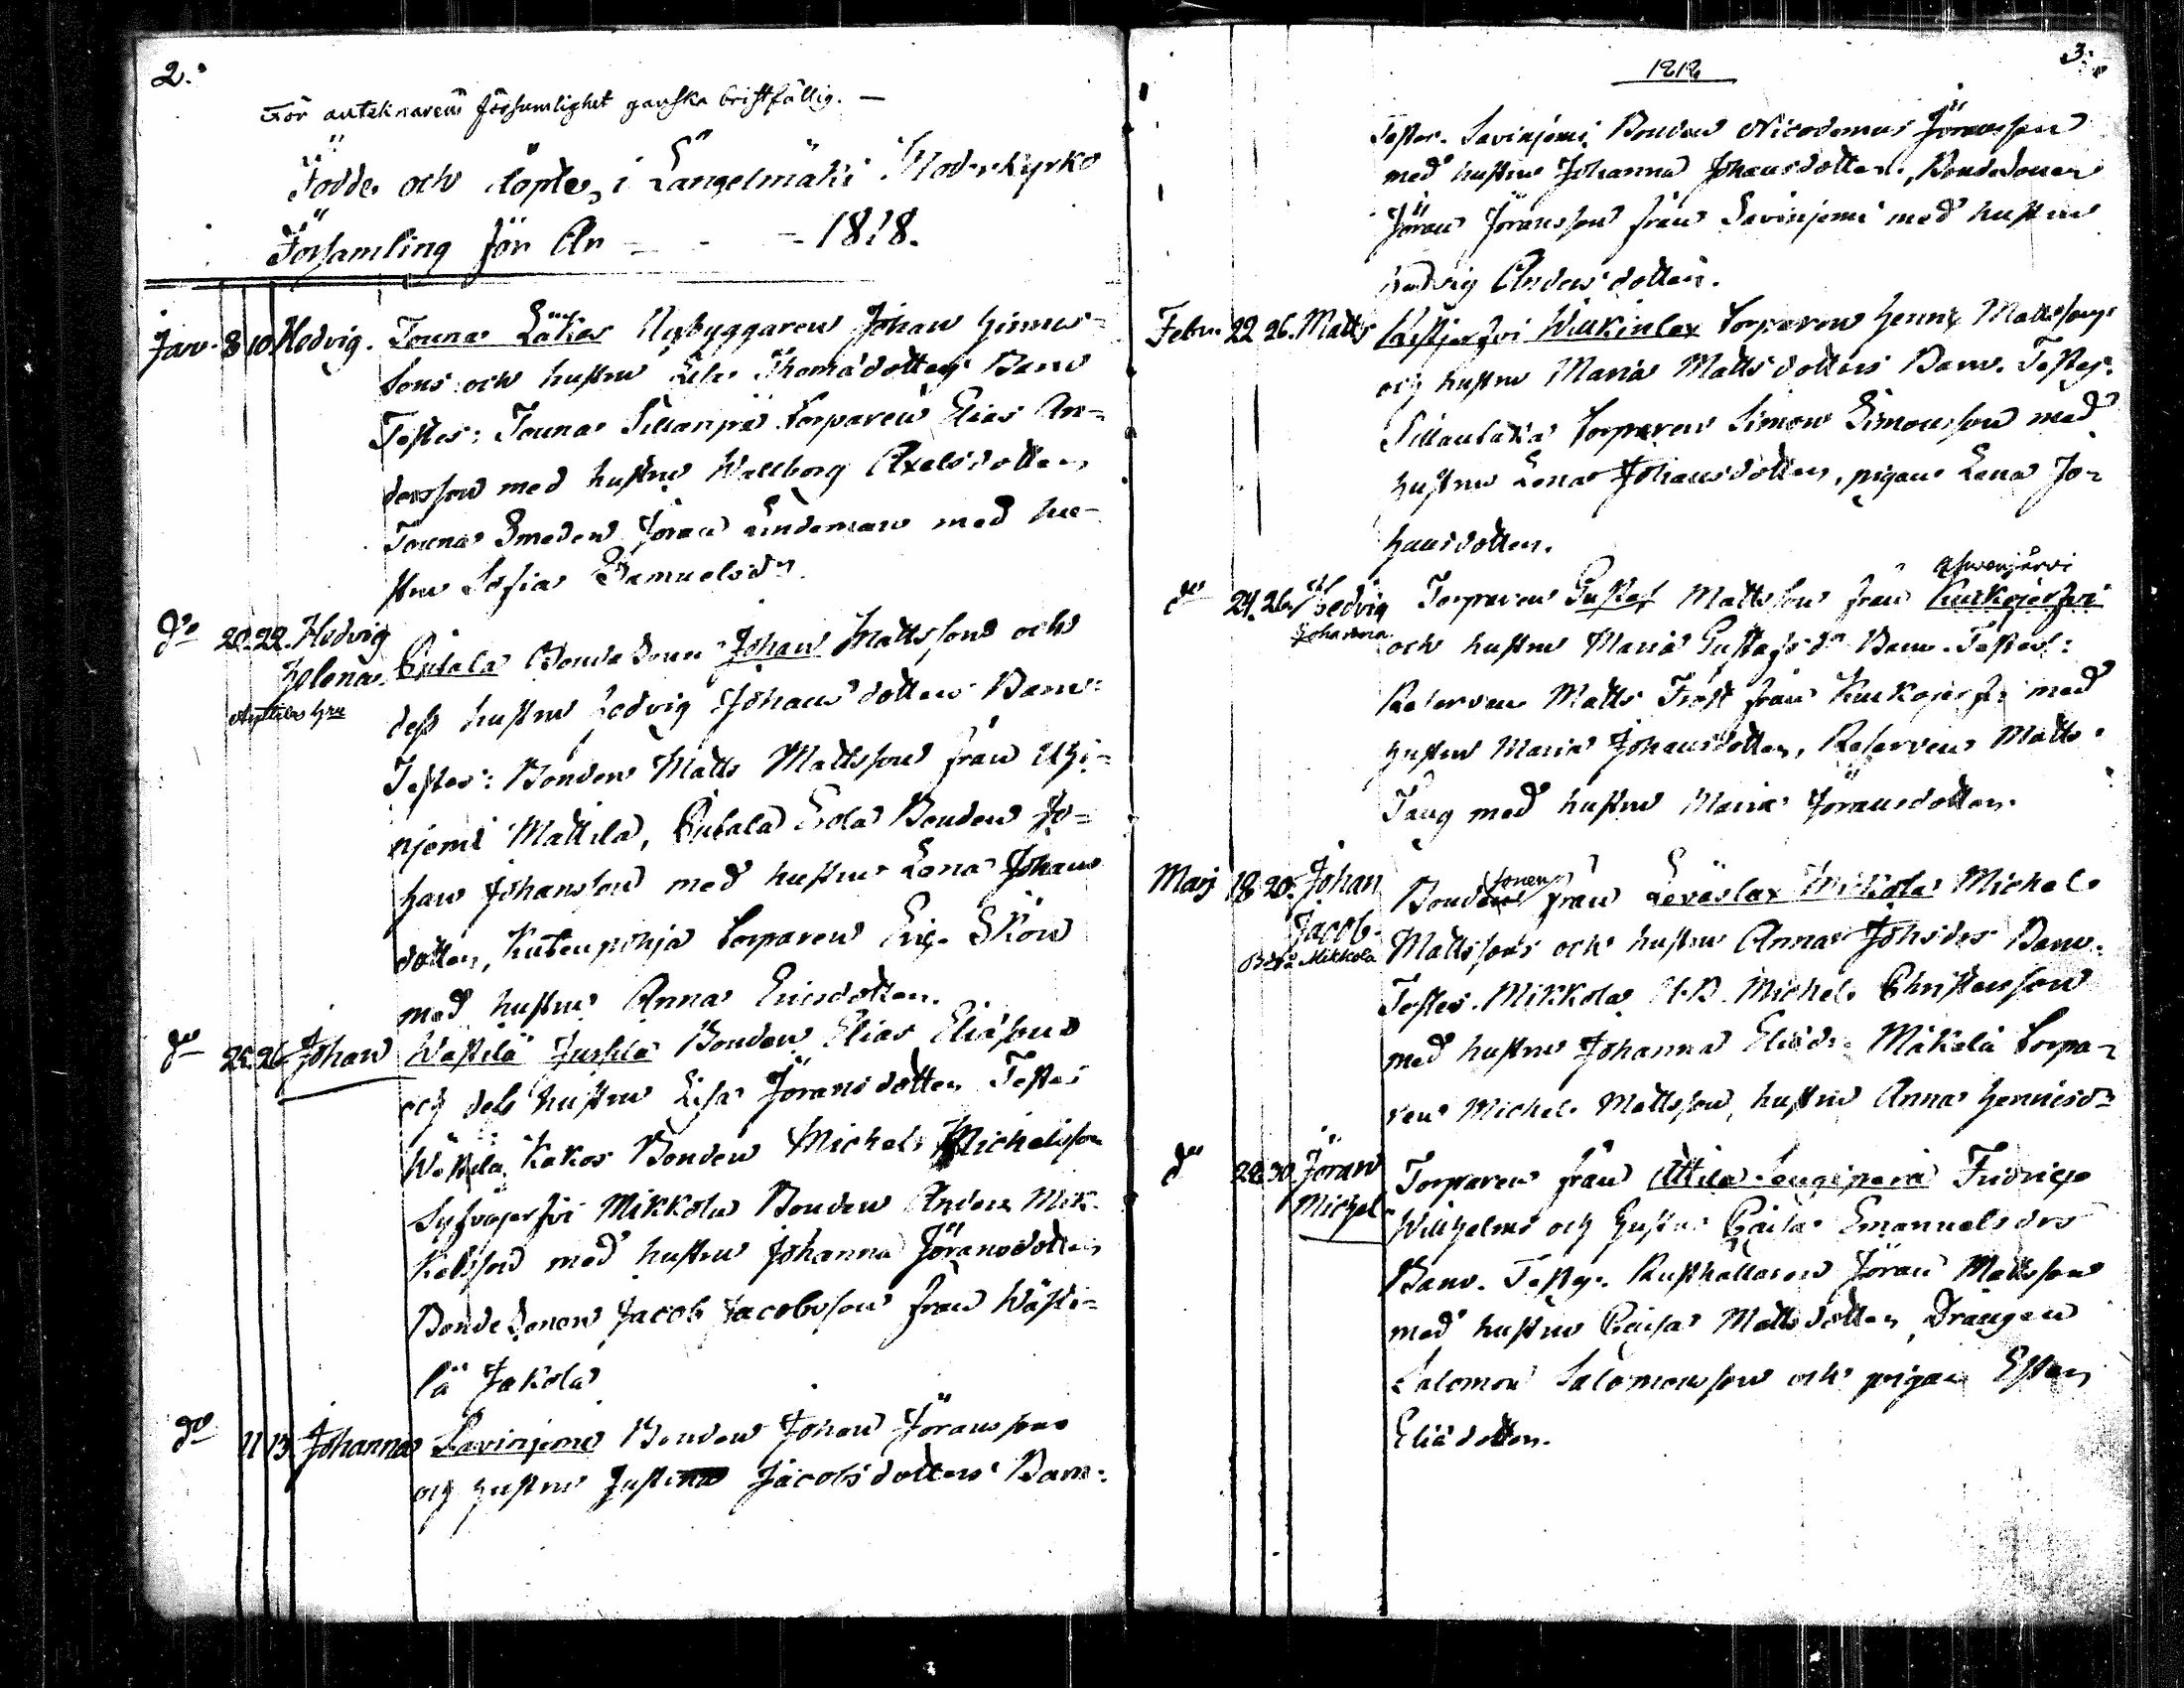 2.
För anteknarens försumlighet ganska bristfällig. —
Födde och döpte, i Längelmäki Moderkyrko
Församling för År - - - 1818.
Janv. 8 10 Hedvig. Touna Nybyggaren Johan Hinrics-
sons och hustru Thomædotters Barn
Testes: Touna Sillanpä Torparen Elias An-
dersson med hustru Wallborg Axelsdotter,
Touna Smeden Jöran Lindeman med hu-
stru Sofia Samuelsdr
do 20. 22. Hedvig Eukala Bondesonen Johan Mattssons och
Helena. dess hustru Hedvig Johansdotters Barn:
Testes: Bonden Matts Mattsson från Uhi-
njemi Mattila, Eukala Eola Bonden Jo-
han Johansson med hustru Lena Johans
dotter, Torparen Eric Skön
med hustru Anna Ericsdotter.
do 25. 26. Johan Wästilä Jussila Bonden Elias Eliæsons
och dess hustru Lisa Jöransdotter Testes
Wästilä Kakos Bonden Michel Michelsson
Mikkola Bonden Anders Mic-
kelsson med hustru Johanna Jöransdotter
Bondesonen Jacob Jacobsson från Wästi-
lä Jakola
do 11 13. Johanna Bonden Johan Jöranssons
och hustru Justina Jacobsdotters Barn:
3.
1818
Testes. Bonden Nicodemus Jöransson
med hustru Johanna Johansdotter, Bondesonen
Jöran Jöransson från med hustru
Hedvig Andersdotter.
Febr. 22 26. Matts Torparen Henric Mattssons
och hustru Maria Mattsdotters Barn. Testes.
Torparen Simon Simonsson med
hustru Lena Johansdotter, pigan Lena Jo-
hansdotter.
Ahvenjärvi
do 24. 26. Hedvig Torparen Gustaf Mattsson från
Johanna och hustru Maria Gustafsdr Barn. Testes:
Reserven Matts Frost från med
hustru Maria Johansdotter, Reserven Matts
Tang med hustru Maria Jöransdotter.
sonens
Marj 18 20. Johan Bonde från Leväslax Mikkola Michel
Jacob. Mattssons och hustru Anna Johsdrs Barn.
Mikkola
Testes. Mikkola Michel Christersson
med hustru Johanna Eliædr Mäkelä Torpa-
ren Michel Mattsson, hustru Anna Henricsdr
do 28 30. Jöran Torparen från Attila Fridrics
Michel Willhelms och hustru Caisa Emanuelsdrs
Barn. Testes. Rusthållaren Jöran Mattsson
med hustru Caisa Mattsdotter, Drängen
Salomon Salomonsson och pigan Ester
Eliædotter.